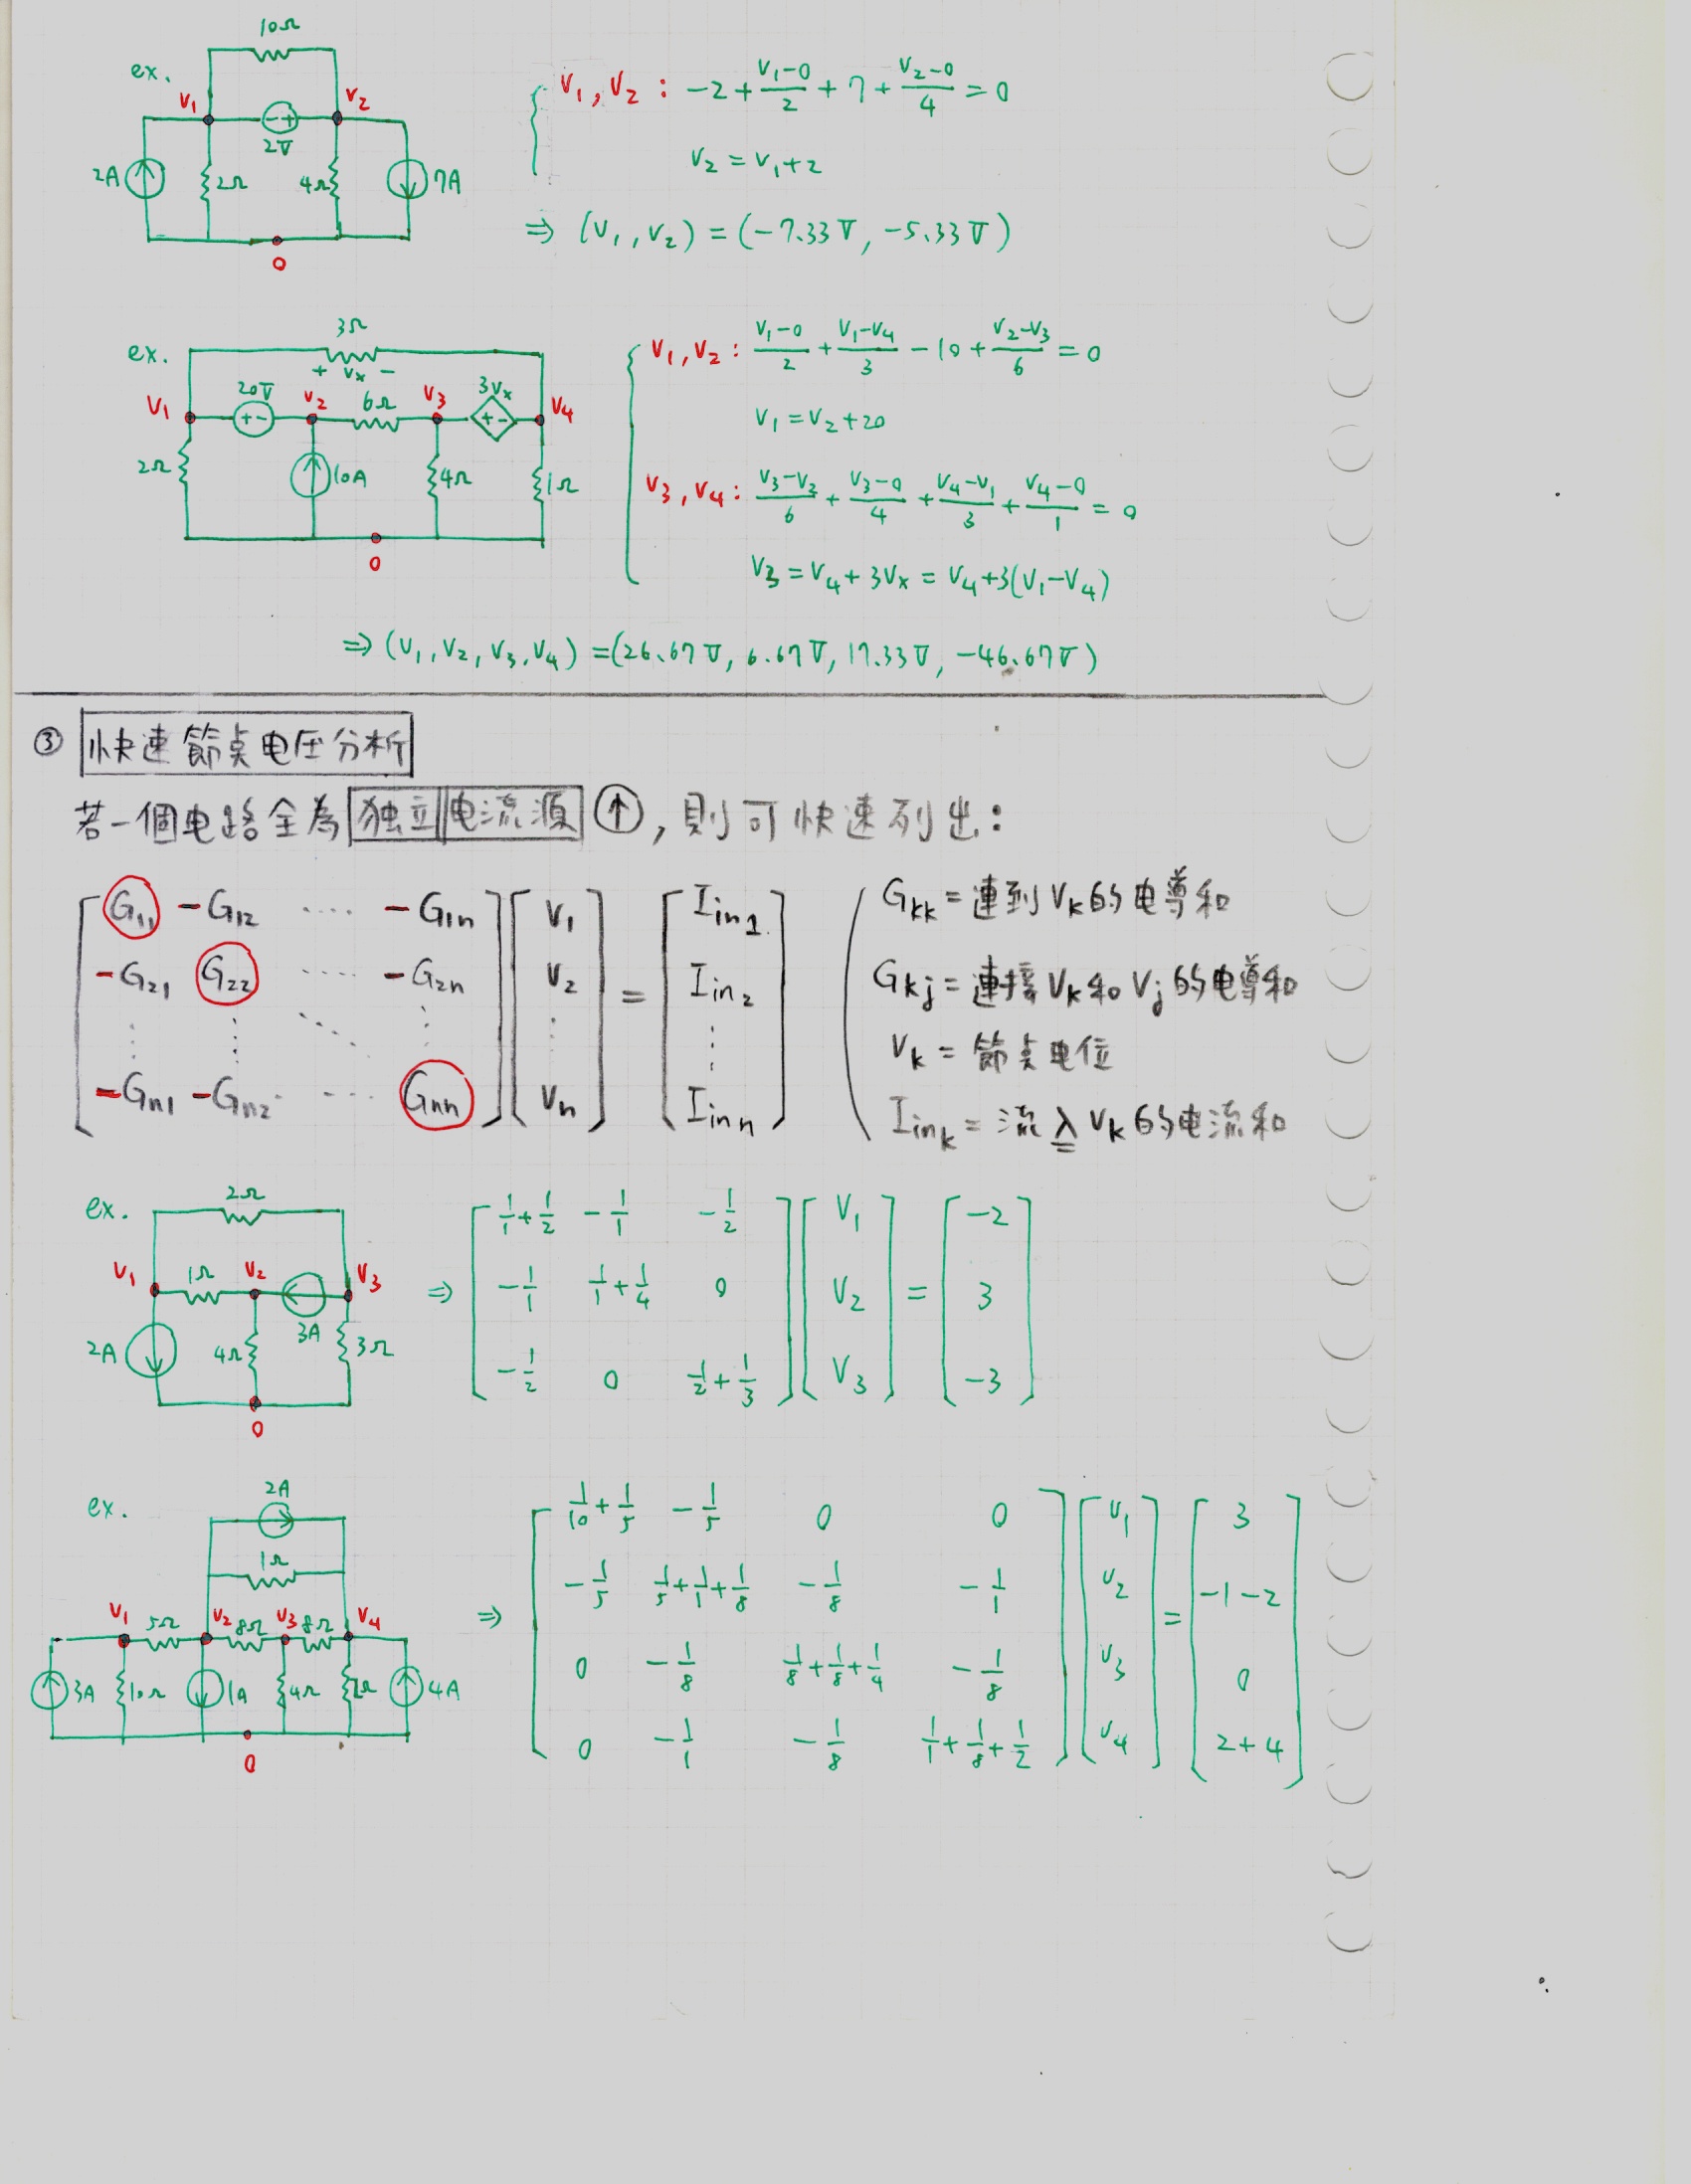 10Ω
ex.
V₁ V₂
2V
2A 2Ω 4Ω 7A
0
V₁, V₂ : -2 + (V₁-0)/2 + 7 + (V₂-0)/4 = 0
V₂ = V₁+2
⇒ (V₁, V₂) = (-7.33V, -5.33V)
3Ω
ex.
+ Vx -
V₁ 20V V₂ 6Ω V₃ 3Vx V₄
+- +-
2Ω 10A 4Ω 1Ω
0
V₁, V₂ : (V₁-0)/2 + (V₁-V₄)/3 - 10 + (V₂-V₃)/6 = 0
V₁ = V₂+20
V₃, V₄ : (V₃-V₂)/6 + (V₃-0)/4 + (V₄-V₁)/3 + (V₄-0)/1 = 0
V₃ = V₄+3Vx = V₄+3(V₁-V₄)
⇒ (V₁, V₂, V₃, V₄) = (26.67V, 6.67V, 17.33V, -46.67V)
③ 快速節点电压分析
若一個电路全為独立电流源 ↑, 則可快速列出:
[G₁₁ -G₁₂ ···· -G₁n] [V₁] = [Iin₁]
[-G₂₁ G₂₂ ···· -G₂n] [V₂] [Iin₂]
⋮ ⋮ ⋱ ⋮ ⋮ ⋮
[-Gn₁ -Gn₂ ···· Gnn] [Vn] [Iinn]
Gkk = 連到Vk的电導和
Gkj = 連接Vk和Vj的电導和
Vk = 節点电位
Iink = 流入Vk的电流和
2Ω
ex.
V₁ 1Ω V₂ V₃
3A
2A 4Ω 3Ω
0
⇒ [1/1+1/2 -1/1 -1/2] [V₁] = [-2]
[-1/1 1/1+1/4 0] [V₂] [3]
[-1/2 0 1/2+1/3] [V₃] [-3]
2A
ex.
1Ω
V₁ 5Ω V₂ 8Ω V₃ 8Ω V₄
3A 10Ω 1A 4Ω 2Ω 4A
0
⇒ [1/10+1/5 -1/5 0 0] [V₁] = [3]
[-1/5 1/5+1/1+1/8 -1/8 -1/1] [V₂] [-1-2]
[0 -1/8 1/8+1/8+1/4 -1/8] [V₃] [0]
[0 -1/1 -1/8 1/1+1/8+1/2] [V₄] [2+4]